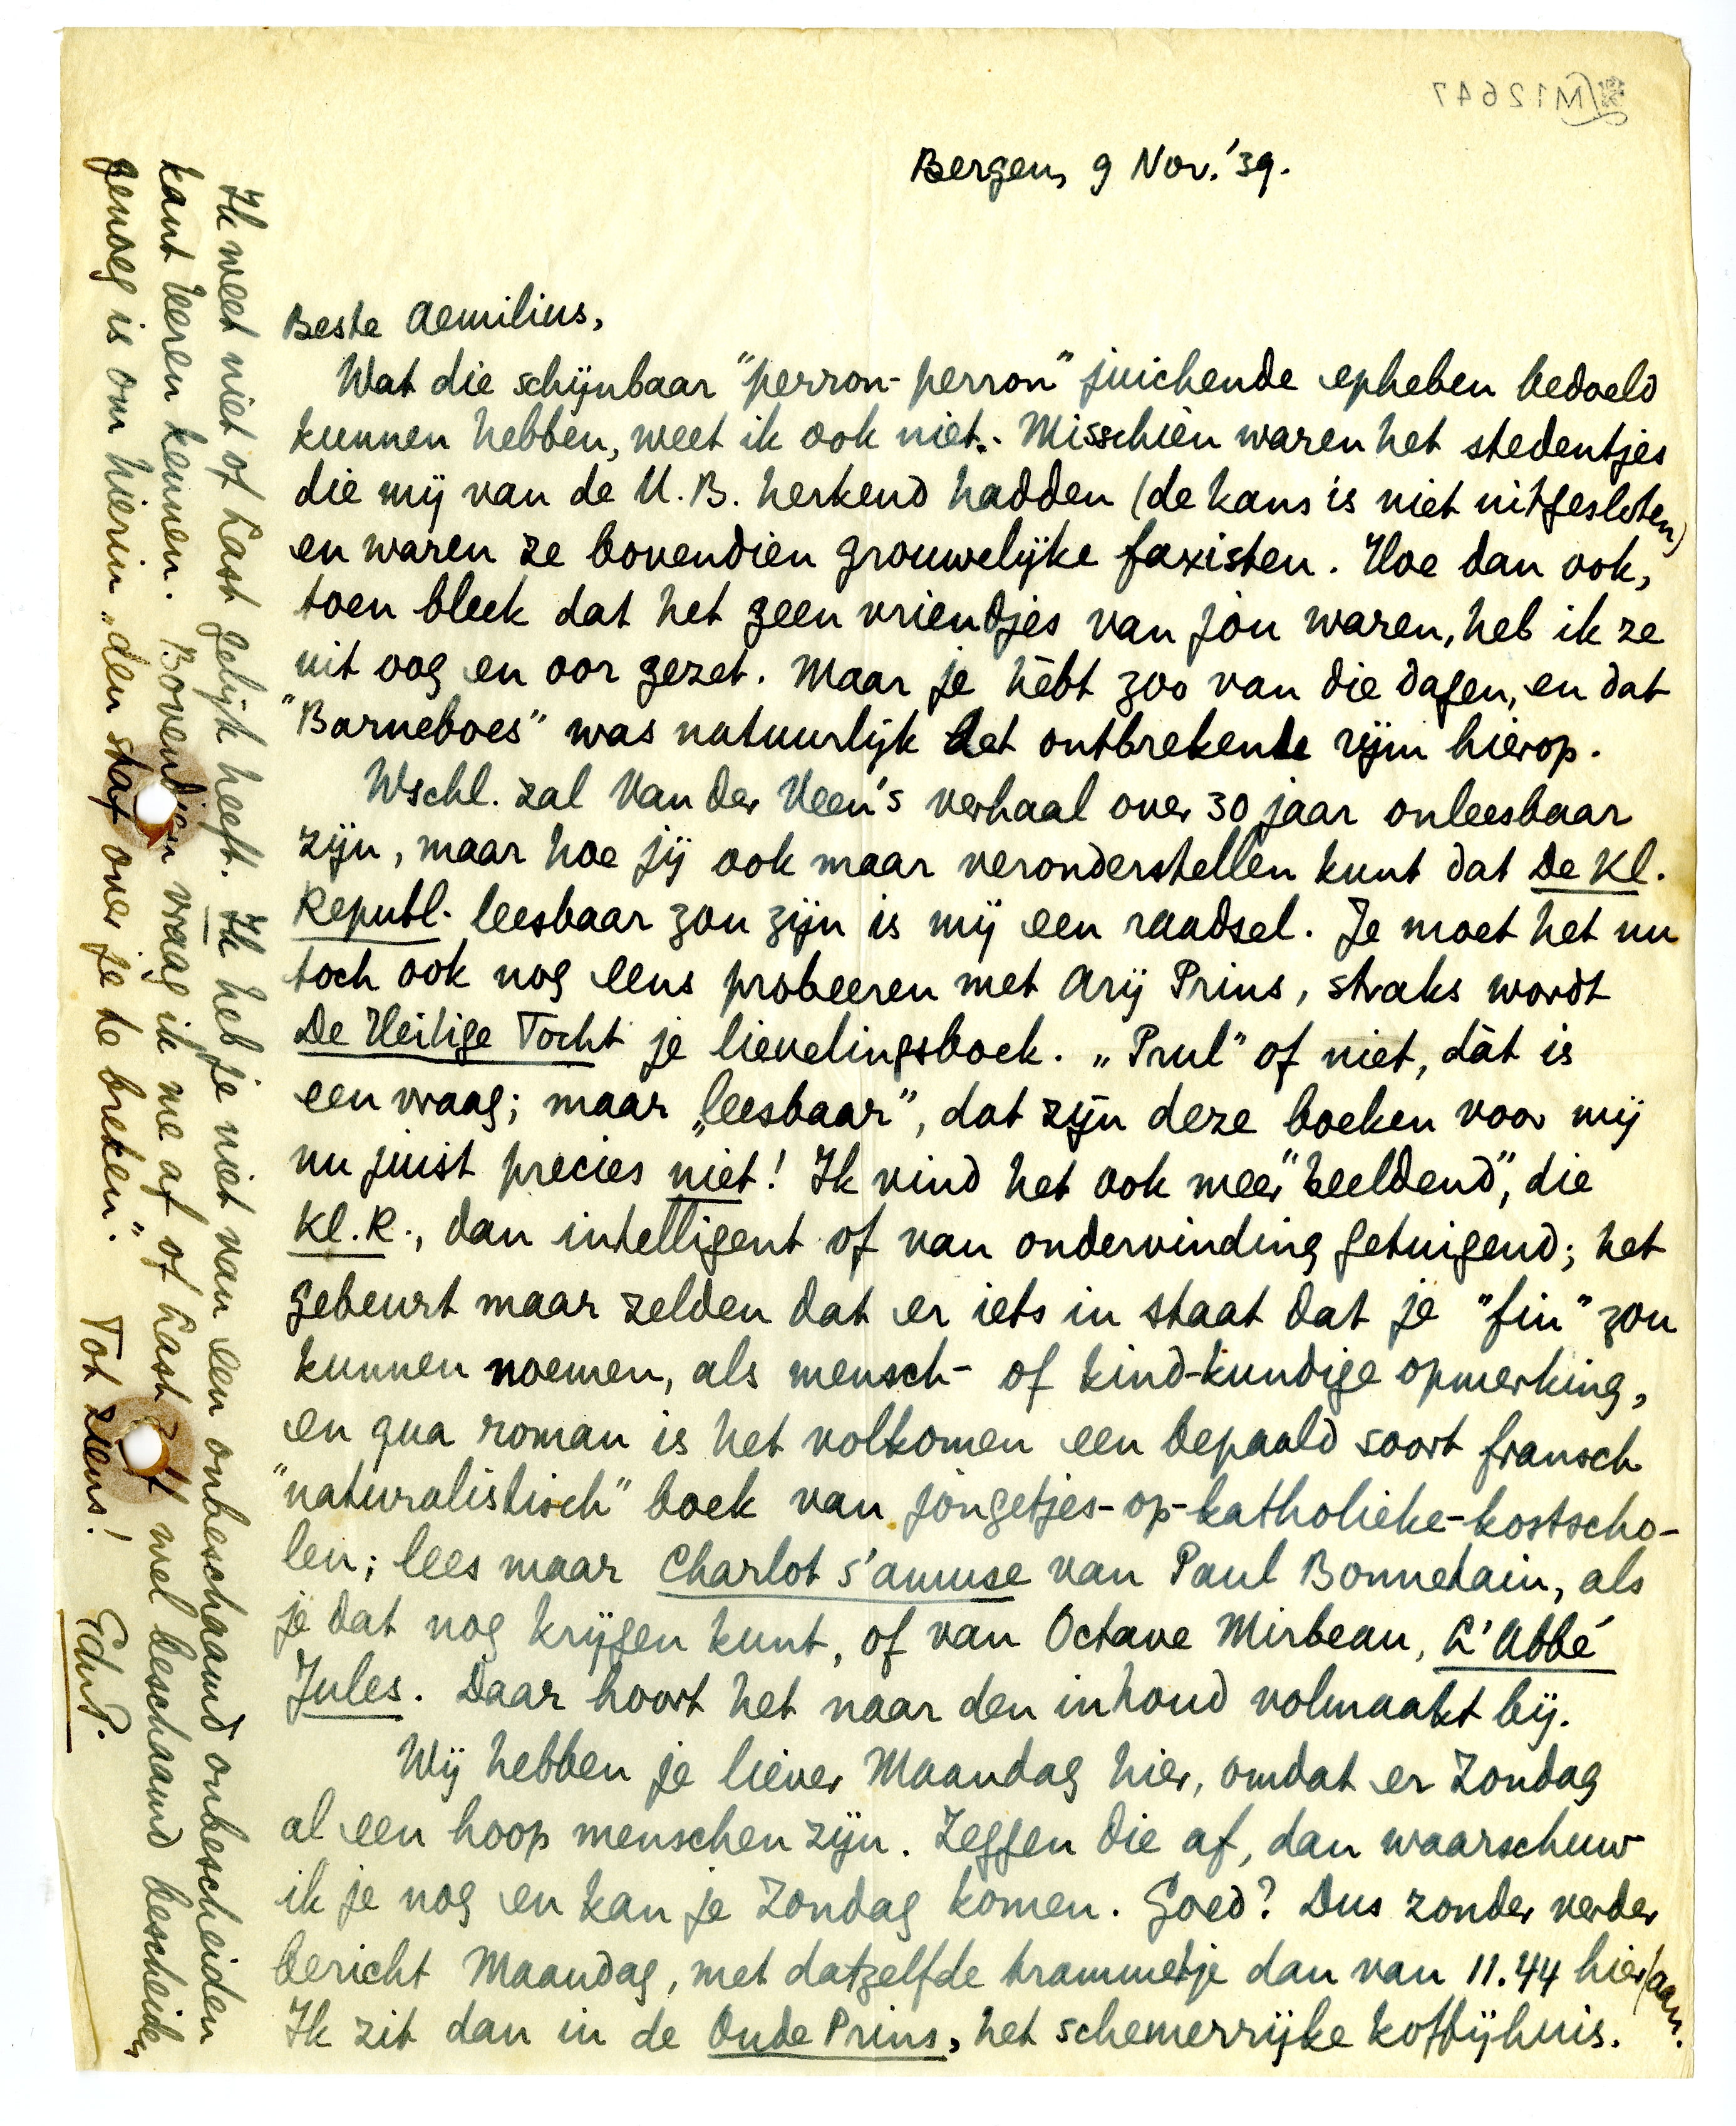 M12647
Bergen, 9 Nov. '39.
Beste Aemilius,
Wat die schijnbaar "perron-perron" juichende epheben bedoeld
kunnen hebben, weet ik ook niet. Misschien waren het stedentjes
die mij van de U.B. herkend hadden (de kans is niet uitgesloten)
en waren ze bovendien grouwelijke faxisten. Hoe dan ook,
toen bleek dat het geen vriendjes van jou waren, heb ik ze
uit oog en oor gezet. Maar je hèbt zoo van die dagen, en dat
"Barneboes" was natuurlijk het ontbrekende rijm hierop.
Wschl. zal Van der Veen's verhaal over 30 jaar onleesbaar
zijn, maar hoe jij ook maar veronderstellen kunt dat De Kl.
Republ. leesbaar zou zijn is mij een raadsel. Je moet het nu
toch ook nog eens probeeren met Arij Prins, straks wordt
De Heilige Tocht je lievelingsboek. „Prul" of niet, dàt is
een vraag; maar „leesbaar", dat zijn deze boeken voor mij
nu juist precies niet! Ik vind het ook meer "beeldend", die
Kl. R., dan intelligent of van ondervinding getuigend; het
gebeurt maar zelden dat er iets in staat dat je "fin" zou
kunnen noemen, als mensch- of kind-kundige opmerking,
en qua roman is het volkomen een bepaald soort fransch
"naturalistisch" boek van jongetjes-op-katholieke-kostscho-
len; lees maar Charlot s'amuse van Paul Bonnetain, als
je dat nog krijgen kunt, of van Octave Mirbeau, L'Abbé
Jules. Daar hoort het naar den inhoud volmaakt bij.
Wij hebben je liever Maandag hier, omdat er Zondag
al een hoop menschen zijn. Zeggen die af, dan waarschuw
ik je nog en kan je Zondag komen. Goed? Dus zonder verder
bericht Maandag, met datzelfde trammetje dan van 11.44 hier aan.
Ik zit dan in de Oude Prins, het schemerrijke koffijhuis.
Ik weet niet of Last gelijk heeft. Ik heb je niet van een onbeschaamd onbescheiden
kant leeren kennen. Bovendien vraag ik me af of Last zelf wel beschaamd bescheiden
genoeg is om hierin „den staf over je te breken". Tot ziens! EduP.